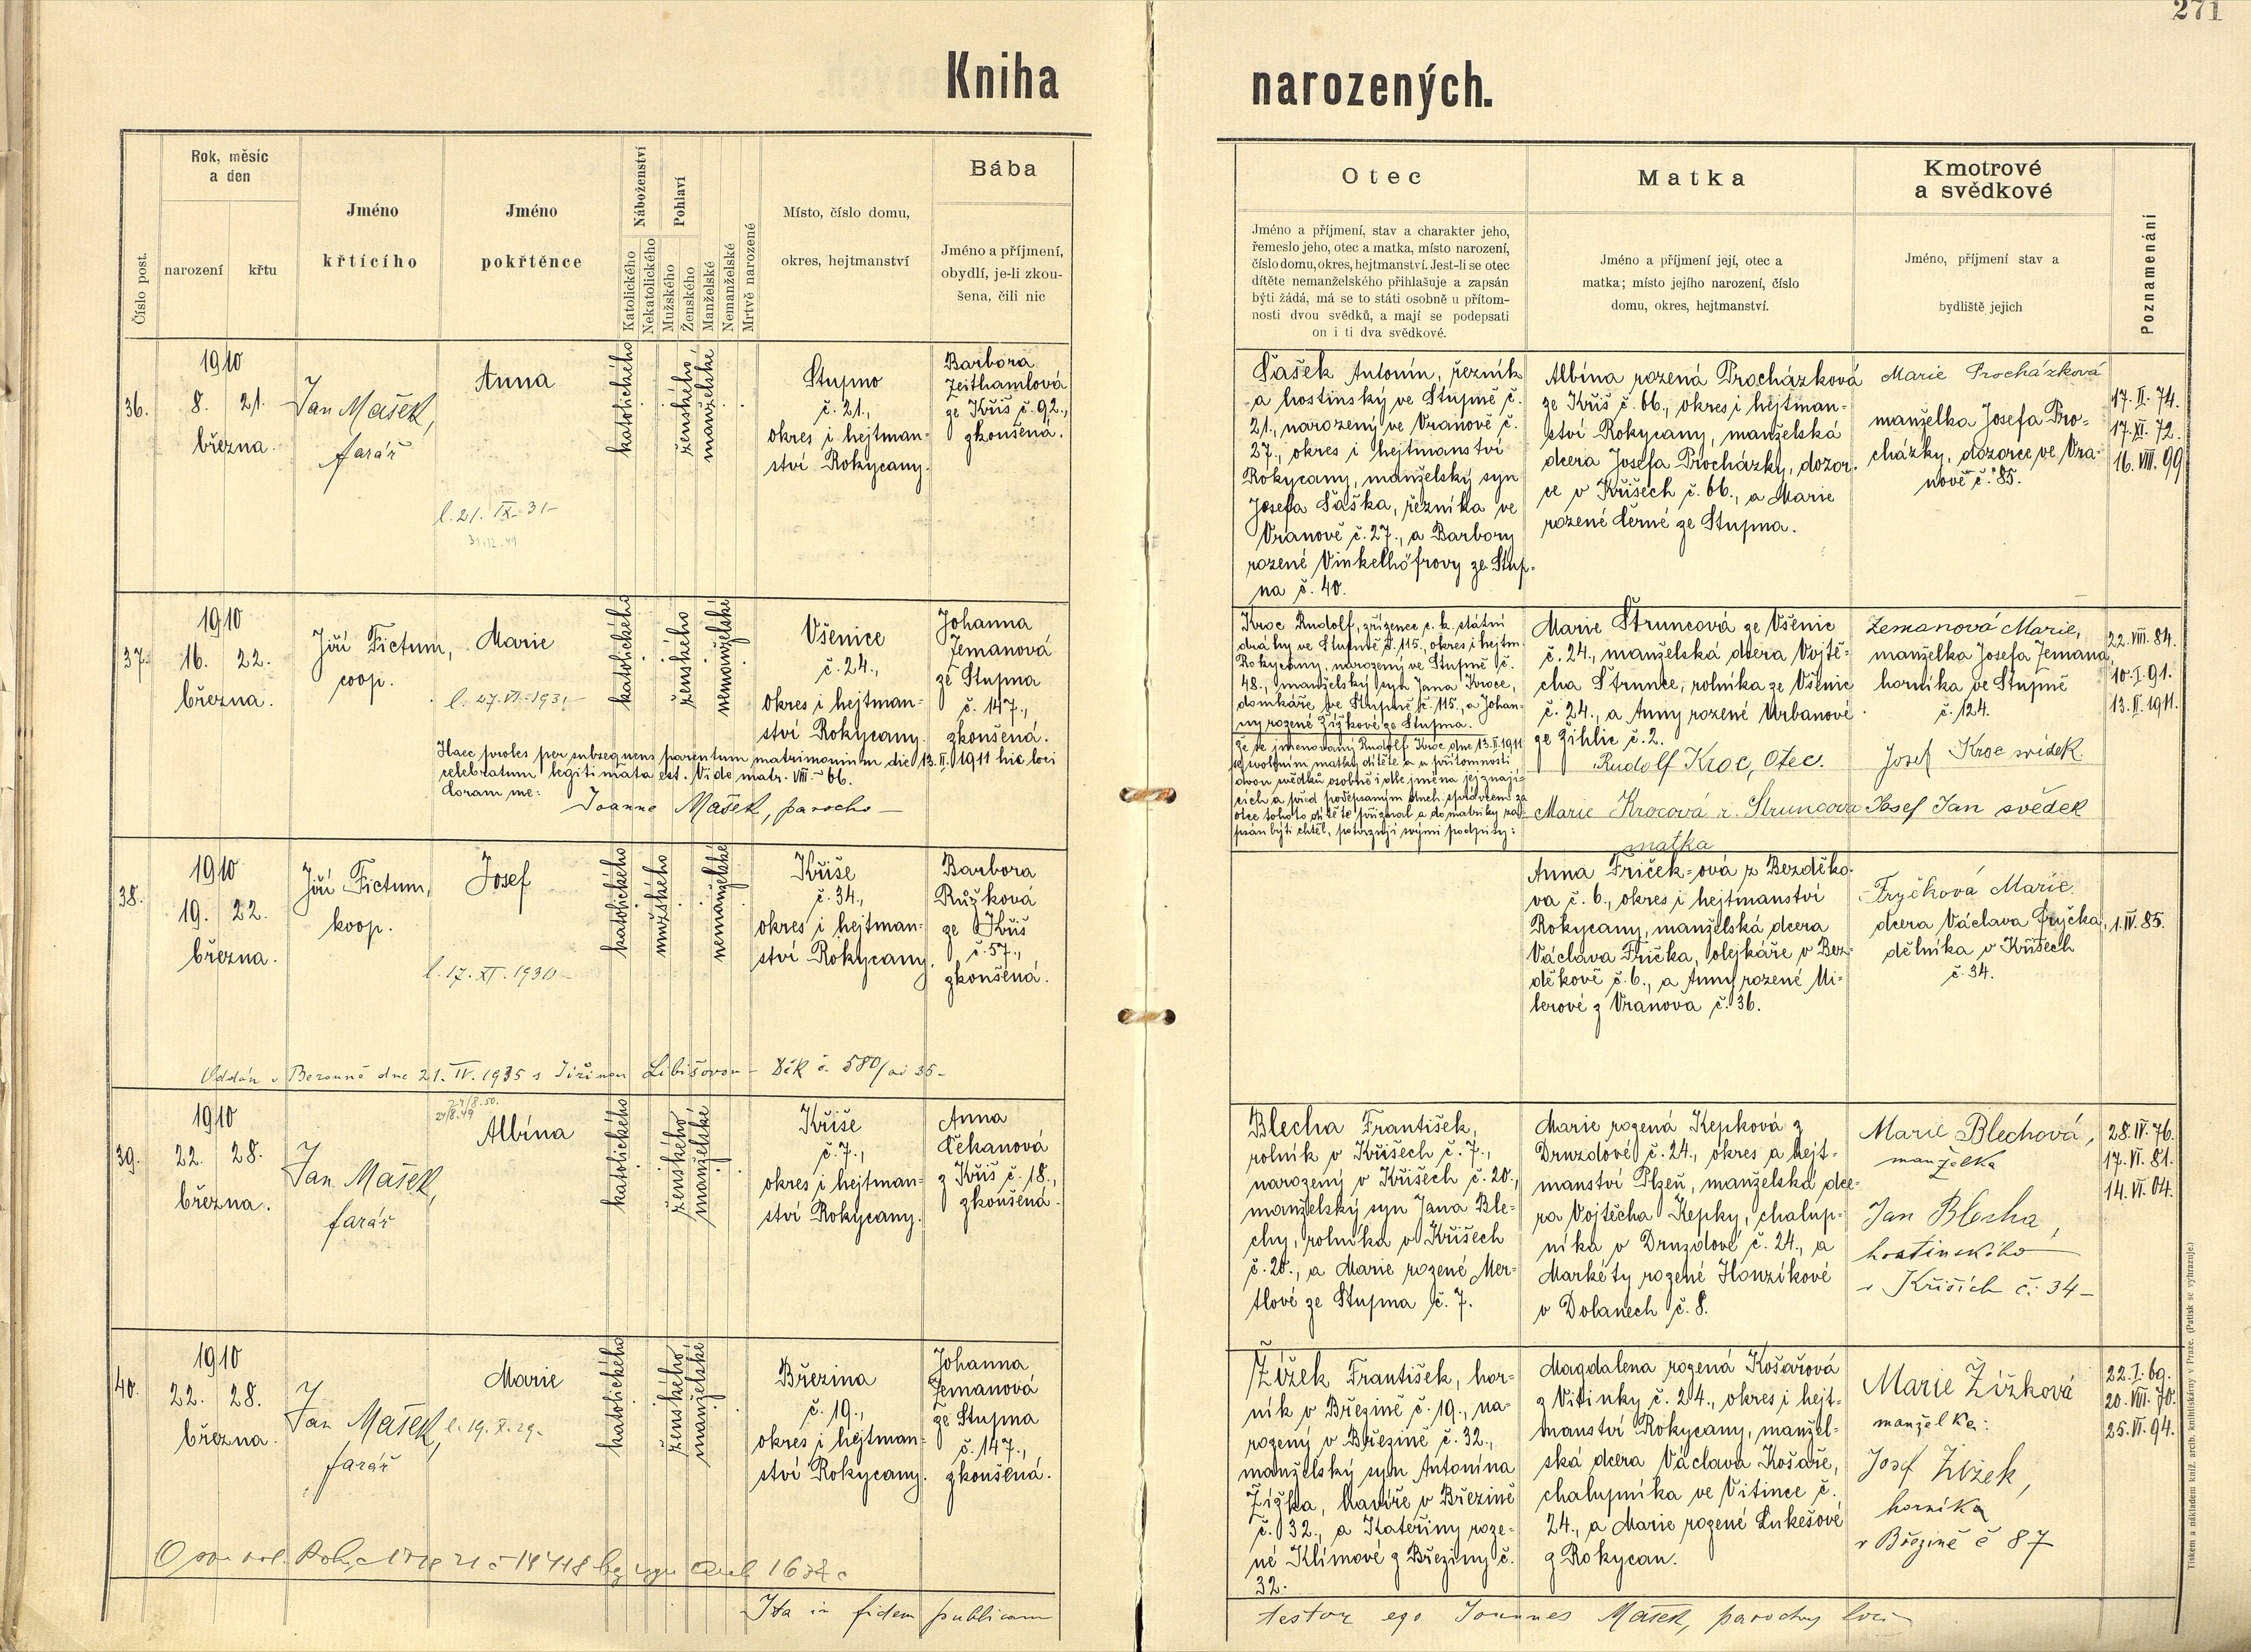 271
Kniha narozených.
Číslo post.
Rok, měsíc
a den
narození
křtu
Jméno
křtícího
Jméno
pokřtěnce
Náboženství
Katolického
Nekatolického
Pohlaví
Mužského
Ženského
Manželské
Nemanželské
Mrtvě narozené
Místo, číslo domu,
okres, hejtmanství
Bába
Jméno a příjmení,
obydlí, je-li zkou-
šena, čili nic
Otec
Jméno a příjmení, stav a charakter jeho,
řemeslo jeho, otec a matka, místo narození,
číslo domu, okres, hejtmanství. Jest-li se otec
dítěte nemanželského přihlašuje a zapsán
býti žádá, má se to státi osobně u přítom-
nosti dvou svědků, a mají se podepsati
on i ti dva svědkové.
Matka
Jméno a příjmení její, otec a
matka; místo jejího narození, číslo
domu, okres, hejtmanství.
Kmotrové
a svědkové
Jméno, příjmení stav a
bydliště jejich
Poznamenání
36.
1910
8. 21.
března.
Jan Mašek,
farář
Anna
l. 21. IX. 31-
katolického
ženského
manželské
Stupno
č. 21.,
okres i hejtman-
ství Rokycany.
Barbora
Zeithamlová
ze Kříš č. 92.,
zkoušená.
Šašek Antonín, řezník
a hostinský ve Stupně č.
21., narozený ve Vranově č.
27., okres i hejtmanství
Rokycany, manželský syn
Josefa Šaška, řezníka ve
Vranově č. 27., a Barbory
rozené Vinkelhöfrovy ze Stup-
na č. 40.
Albína rozená Procházková
ze Kříš č. 66., okres i hejtman-
ství Rokycany, manželská
dcera Josefa Procházky, dozor-
ce v Kříšech č. 66., a Marie
rozené Černé ze Stupna.
Marie Procházková
manželka Josefa Pro-
cházky, dozorce ve Vra-
nově č. 85.
17. II. 74.
17. XI. 72.
16. VIII. 99
37.
1910
16. 22.
března.
Jiří Fictum,
coop.
Marie
l. 27. VI. 1931-
katolického
ženského
nemanželské
Všenice
č. 24.,
okres i hejtman-
ství Rokycany.
Johanna
Zemanová
ze Stupna
č. 147.,
zkoušená.
Haec proles per subsequens parentum matrimonium die 13. II. 1911 hic loci
celebratum legitimata est. Vide matr. VIII. - 66.
Coram me:
Joanne Mašek, parocho-
Kroc Rudolf, zřízenec c. k. státní
dráhy ve Stupně č. 115., okres i hejtm.
Rokycany, narozený ve Stupně č.
48., manželský syn Jana Kroce,
domkáře ve Stupně č. 115., a Johan-
ny rozené Žižkové ze Stupna.
Že se jmenovaný Rudolf Kroc dne 13. II. 1911
se svolením matky dítěte a u přítomnosti
dvou svědků osobně i dle jména jej znají-
cích a před podepsaným duch. správcem za
otce tohoto dítěte přiznal a do matriky zap-
psán býti chtěl, potvrzují svými podpisy:
Marie Štruncová ze Všenic
č. 24., manželská dcera Vojtě-
cha Štrunce, rolníka ze Všenic
č. 24., a Anny rozené Urbanové
ze Žihlic č. 2.
Rudolf Kroc, Otec.
Marie Krocová r. Struncova
matka
Zemanová Marie,
manželka Josefa Zemana,
horníka ve Stupně
č. 124.
Josef Kroc svědek
Josef Jan svědek
22. VIII. 84.
10. I. 91.
13. II. 1911.
38.
1910
19. 22.
března.
Jiří Fictum,
koop.
Josef
l. 17. XI. 1930-
katolického
mužského
nemanželské
Kříše
č. 34.,
okres i hejtman-
ství Rokycany.
Barbora
Růžková
ze Kříš
č. 57.,
zkoušená.
Oddán v Berouně dne 21. IV. 1935 s Jiřinou Libišovou - Děk č. 580/ai 35-
Anna Friček-ová z Bezděko-
va č. 6., okres i hejtmanství
Rokycany, manželská dcera
Václava Frička, olejkáře v Bez-
děkově č. 6., a Anny rozené Mi-
lerové z Vranova č. 36.
Fryčková Marie
dcera Václava Fryčka,
dělníka v Kříšech
č. 34.
1. IV. 85.
39.
1910
22. 28.
března.
Jan Mašek,
farář
24/8.50.
24/8.49
Albína
katolického
ženského
manželské
Kříše
č. 7.,
okres i hejtman-
ství Rokycany.
Anna
Čekanová
z Kříš č. 18.,
zkoušená.
Blecha František,
rolník v Kříšech č. 7.,
narozený v Kříšech č. 20.,
manželský syn Jana Ble-
chy, rolníka v Kříšech
č. 20., a Marie rozené Mer-
tlové ze Stupna č. 7.
Marie rozená Kepková z
Druzdové č. 24., okres a hejt-
manství Plzeň, manželská dce-
ra Vojtěcha Kepky, chalup-
níka v Druzdové č. 24., a
Markéty rozené Honzíkové
v Dolanech č. 8.
Marie Blechová,
manželka
Jan Blecha,
hostinského
v Kříších č. 34-
28. IV. 76.
17. VI. 81.
14. VI. 04.
40.
1910
22. 28.
března.
Jan Mašek,
farář
Marie
l. 19. X. 29.
katolického
ženského
manželské
Březina
č. 19.,
okres i hejtman-
ství Rokycany.
Johanna
Zemanová
ze Stupna
č. 147.,
zkoušená.
Žížek František, hor-
ník v Březině č. 19., na-
rozený v Březině č. 32.,
manželský syn Antonína
Žížka, havíře v Březině
č. 32., a Kateřiny roze-
né Klímové z Březiny č.
32.
Magdalena rozená Košařová
z Vitinky č. 24., okres i hejt-
manství Rokycany, manžel-
ská dcera Václava Košaře,
chalupníka ve Vitince č.
24., a Marie rozené Lukešové
z Rokycan.
Marie Žížková
manželka:
Josef Žížek,
horníka
v Březině č 87
22. I. 69.
20. VIII. 70.
25. VI. 94.
Ita in fidem publicam
testor ego Joannes Mašek, parochus loci
Tiskem a nákladem kníž. arcib. knihtiskárny v Praze. (Patisk se vyhrazuje.)